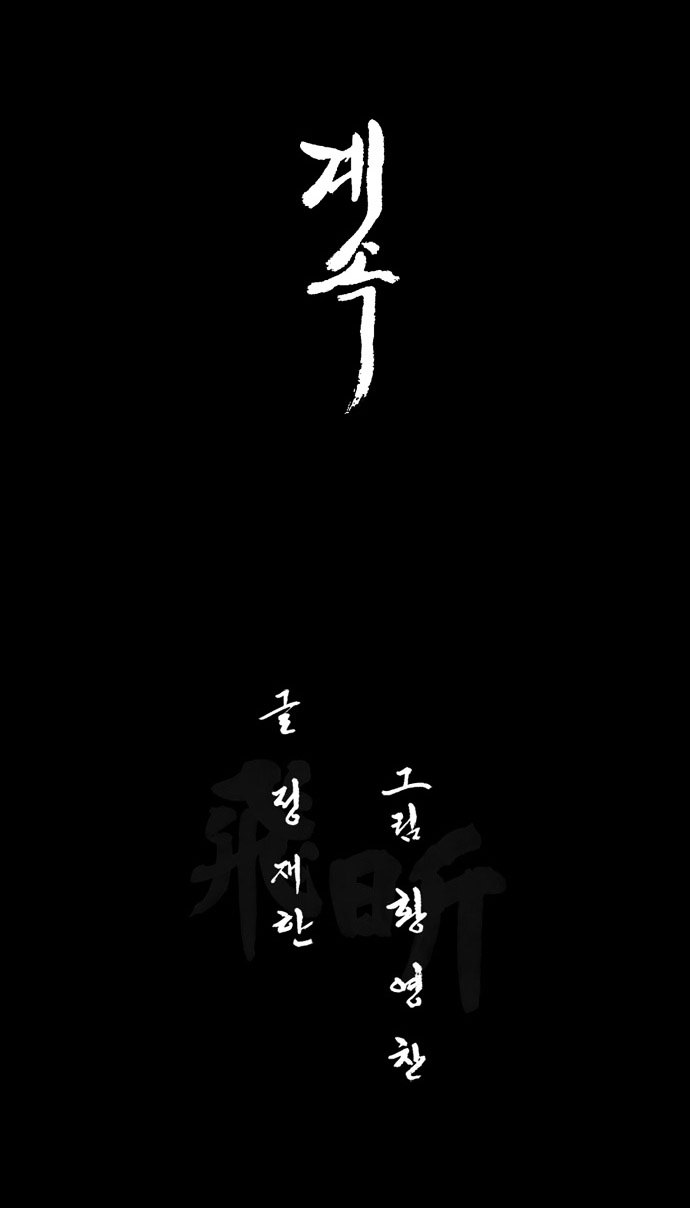 계속
글 정재한
그림 황영찬
飛昕